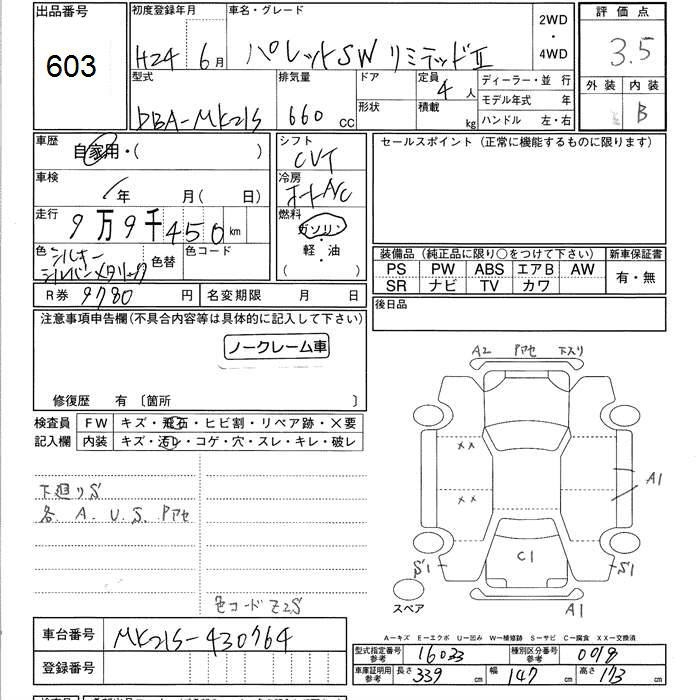 出品番号
603
初度登録年月
H24 6月
車名・グレード
パレットSW リミテッドⅡ
2WD
・
4WD
評価点
3.5
外装 内装
B
型式
DBA-MK21S
排気量
660 cc
ドア
形状
定員
4人
積載
kg
ディーラー・並 行
モデル年式 年
ハンドル 左・右
車歴
自家用・( )
車検
年 月( 日)
走行
9万9千450km
色
シルキー
シルバーメタリック
色替
色コード
シフト
CVT
冷房
オートA/C
燃料
ガソリン
・
軽・油
( )
セールスポイント (正常に機能するものに限ります)
装備品 (純正品に限り○をつけて下さい)
新車保証書
PS PW ABS エアB AW
SR ナビ TV カワ
有・無
後日品
R券 9780 円
名変期限 月 日
注意事項申告欄(不具合内容等は具体的に記入して下さい)
ノークレーム車
修復歴 有 〔箇所 〕
検査員
記入欄
FW キズ・飛石・ヒビ割・リペア跡・×要
内装 キズ・汚レ・コゲ・穴・スレ・キレ・破レ
下廻りS
各 A. U. S. Pアセ
色コード Z2S
A2 Pアセ 下スリ
××
××
A1
C1
S1
S1
A1
スペア
A－キズ E－エクボ U－凹み W－補修跡 S－サビ C－腐食 XX－交換済
車台番号
MK21S-430764
登録番号
型式指定番号
参考
16023
種別区分番号
参考
0018
車庫証明用
参考
長さ 339 cm
幅 147 cm
高さ 173 cm